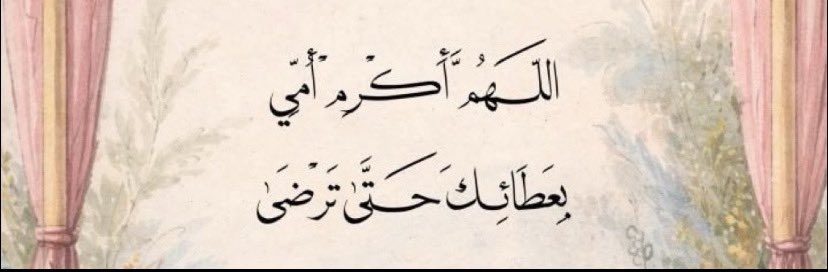 اللّٰهُمَّ أَكْرِمْ أُمِّي
بِعَطَائِكَ حَتَّىٰ تَرْضَىٰ